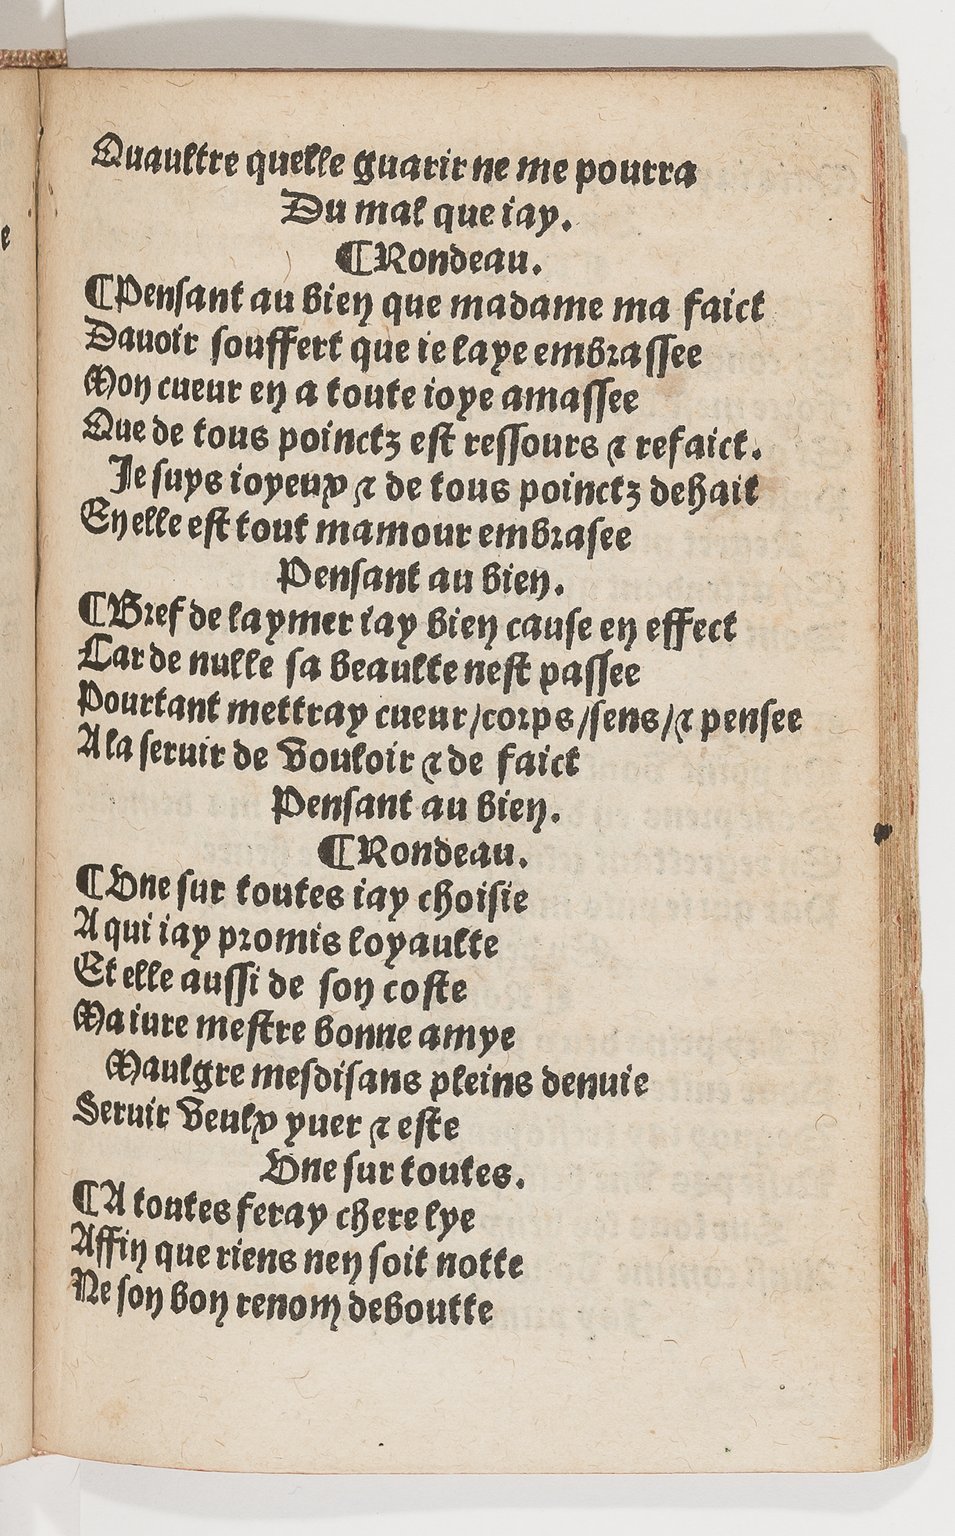 Quaultre quelle guarir ne me pourra
Du mal que iay.
⸿Rondeau.
⸿Pensant au bien que madame ma faict
Dauoir souffert que ie laye embrassee
Mon cueur en a toute ioye amassee
Que de tous poinctz est ressours ⁊ refaict.
Je suys ioyeux ⁊ de tous poinctz dehait
En elle est tout mamour embrasee
Pensant au bien.
⸿Bref de laymer iay bien cause en effect
Car de nulle sa beaulte nest passee
Pourtant mettray cueur/corps/sens/⁊ pensee
A la seruir de vouloir ⁊ de faict
Pensant au bien.
⸿Rondeau.
⸿Une sur toutes iay choisie
A qui iay promis loyaulte
Et elle aussi de son coste
Ma iure mestre bonne amye
Maulgre mesdisans pleins denuie
Seruir veulx yuer ⁊ este
Une sur toutes.
⸿A toutes feray chere lye
Affin que riens nen soit notte
Ne son bon renom deboutte